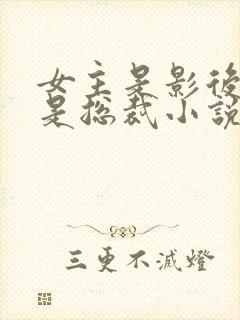 女主是影後
是总裁小說
三更不滅燈